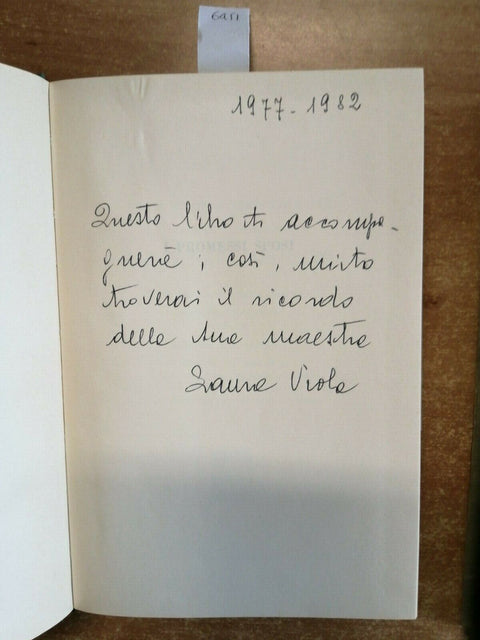 6251
1977-1982
Questo libro ti accompa-
gnerà; così, unito
troverai il ricordo
della tua maestra
Laura Viola
I PROMESSI SPOSI